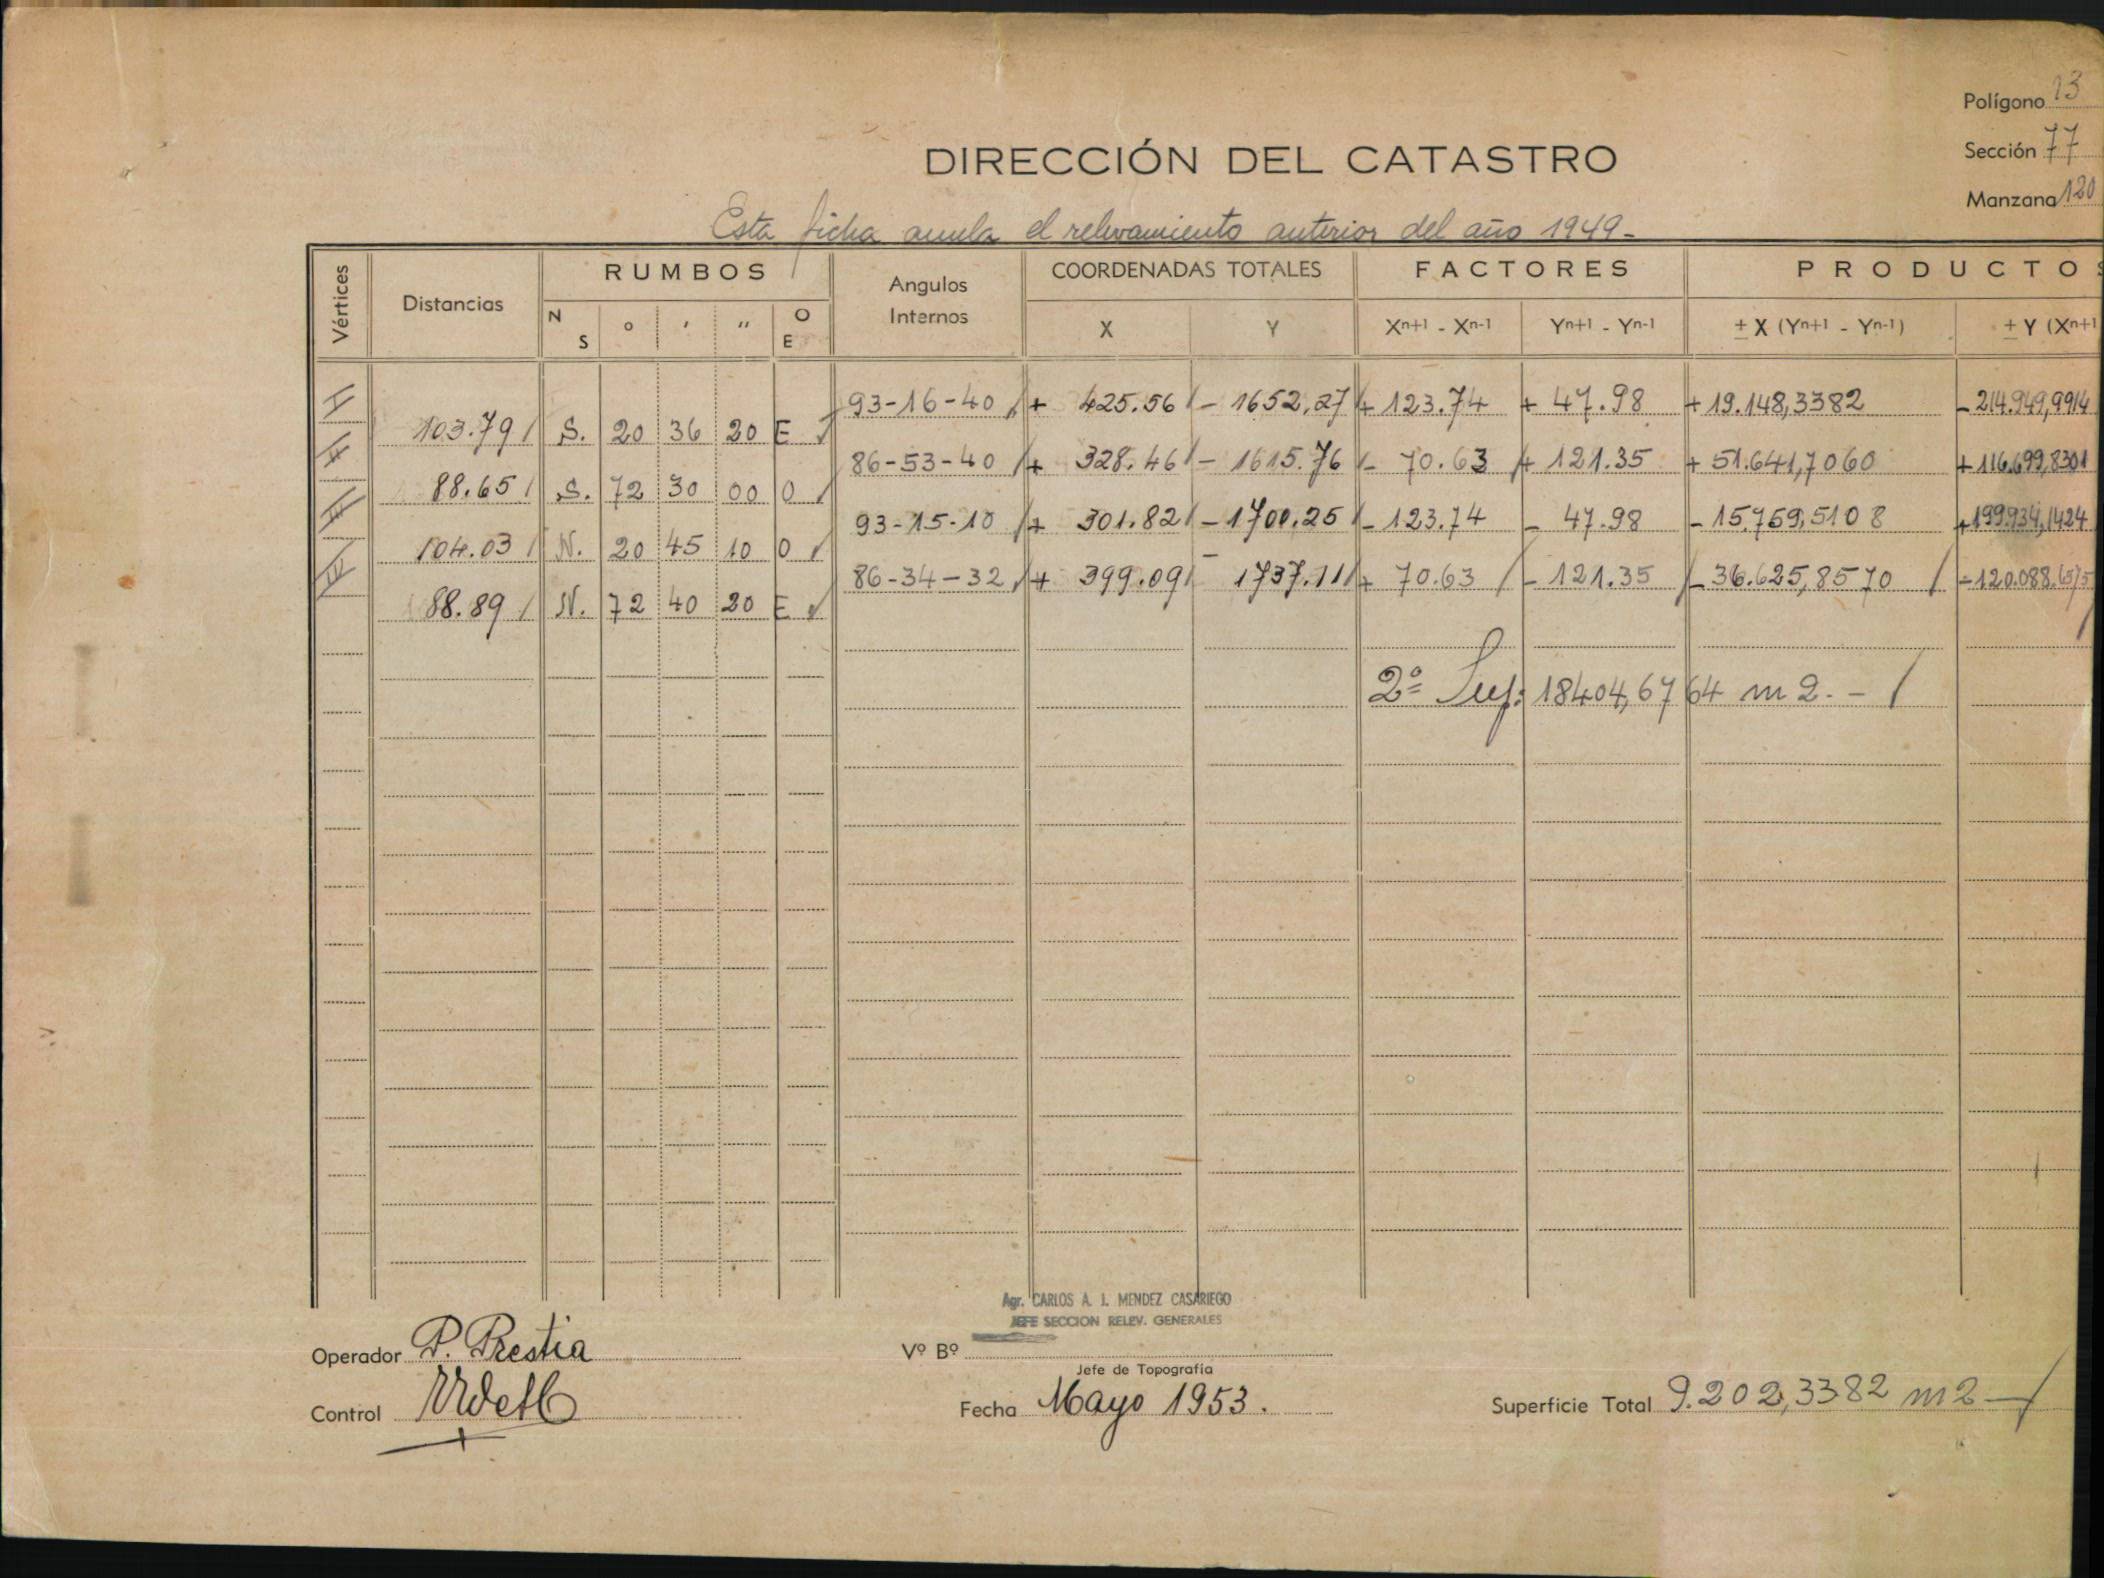 Polígono 13
Sección 77
Manzana 120
DIRECCIÓN DEL CATASTRO
Esta ficha anula el relevamiento anterior del año 1949-
Vértices Distancias RUMBOS Angulos Internos COORDENADAS TOTALES FACTORES PRODUCTOS
N S ° ' '' O E X Y Xn+1 - Xn-1 Yn+1 - Yn-1 ± X (Yn+1 - Yn-1) ± Y (Xn+1
I 93-16-40 + 425.56 - 1652,27 + 123.74 + 47.98 + 19.148,3382 - 214.949,9914
103.79 S. 20 36 20 E
II 86-53-40 + 328.46 - 1615.76 - 70.63 + 121.35 + 51.641,7060 + 116.699,8301
88.65 S. 72 30 00 O
III 93-15-10 + 301.82 - 1700.25 - 123.74 - 47.98 - 15.759,5108 + 199.934,1424
104.03 N. 20 45 10 O
IV 86-34-32 + 399.09 - 1737.11 + 70.63 - 121.35 - 36.625,8570 - 120.088,6575
88.89 N. 72 40 20 E
2ª Sup: 18404,6764 m2.-
Agr. CARLOS A. J. MENDEZ CASARIEGO
JEFE SECCION RELEV. GENERALES
Operador P. Prestia Vº Bº
Jefe de Topografía
Control Fecha Mayo 1953. Superficie Total 9.202,3382 m2